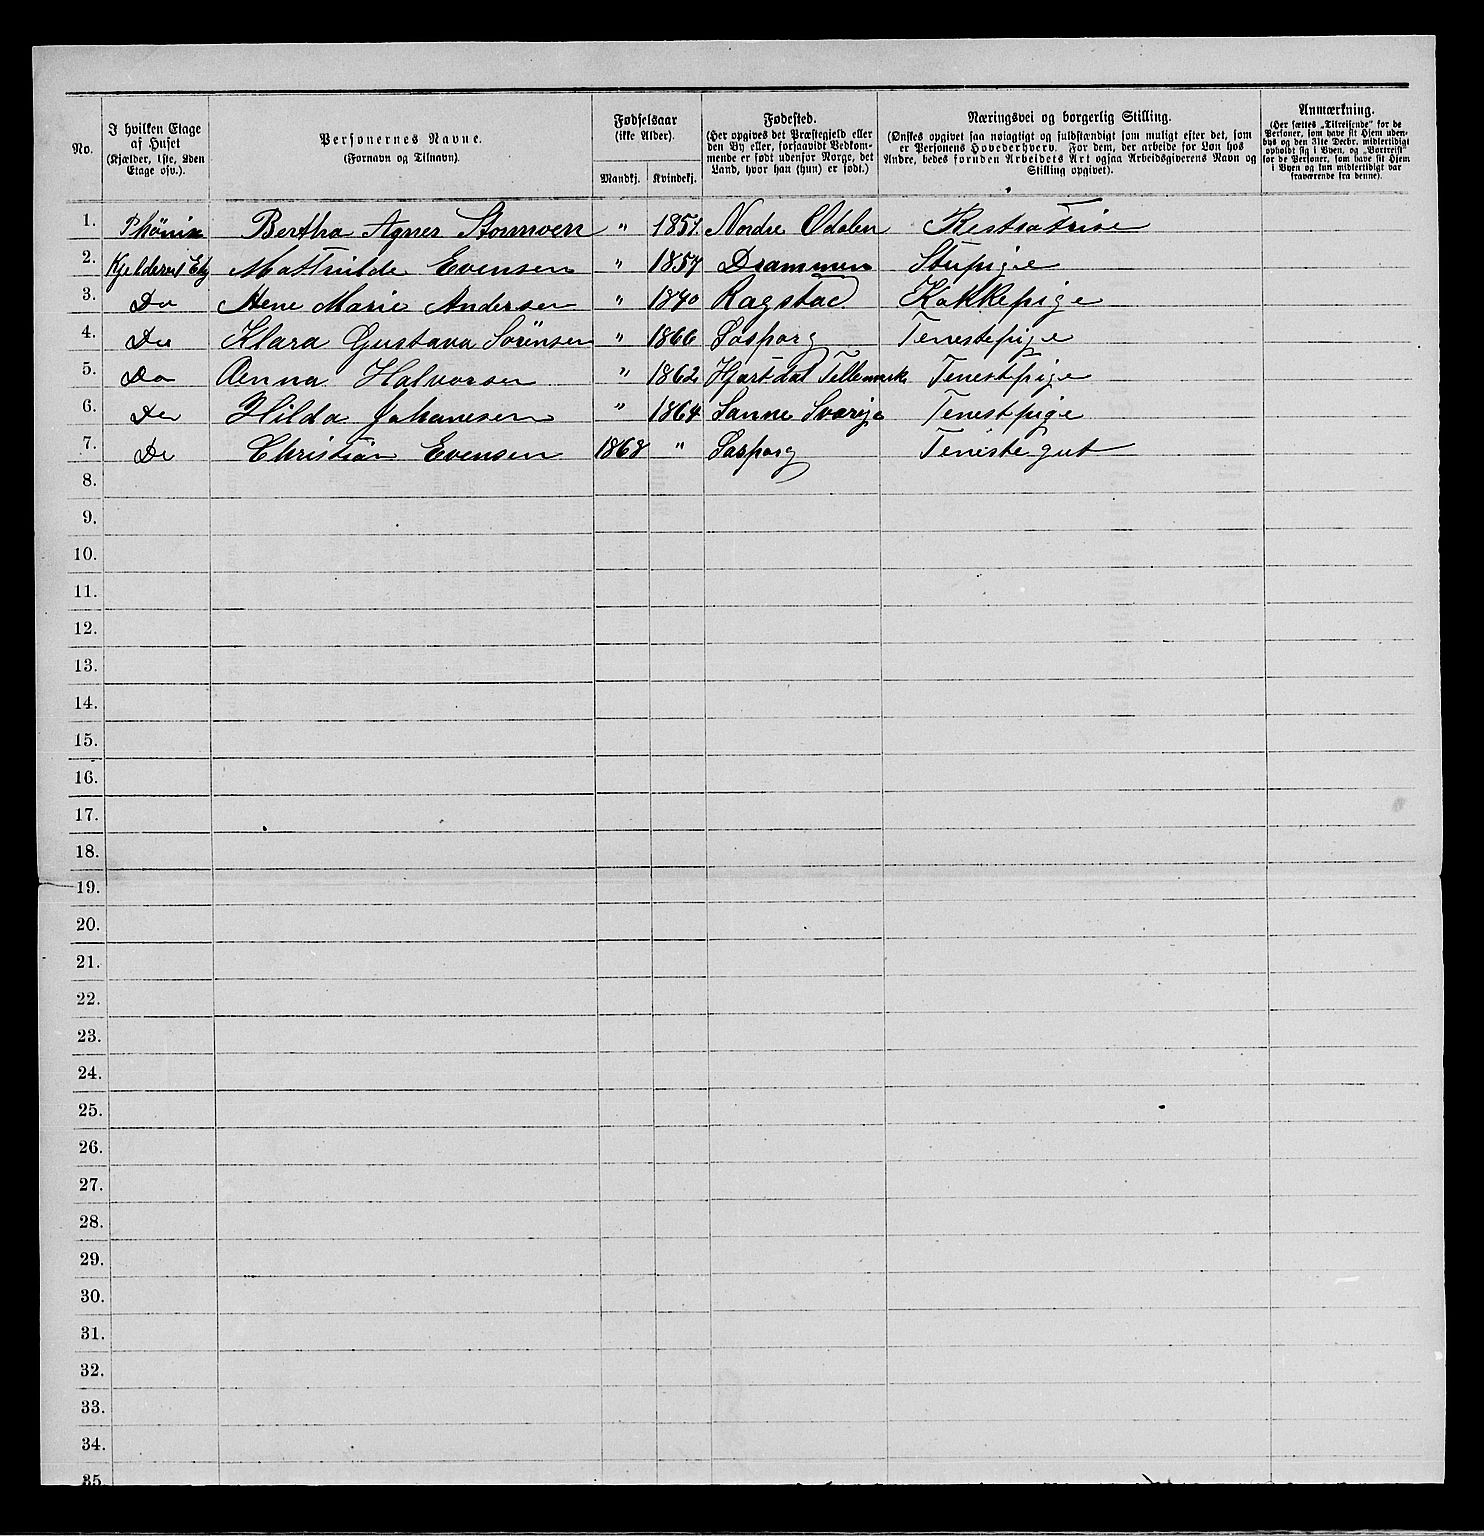 No.
I hvilken Etage af Huset (Kjælder, 1ste, 2den Etage osv.).
Personernes Navne. (Fornavn og Tilnavn).
Fødselsaar (ikke Alder). Mandkj. Kvindekj.
Fødested. (Her opgives det Præstegjeld eller den By eller, forsaavidt Vedkommende er født udenfor Norge, det Land, hvor han (hun) er født.)
Næringsvei og borgerlig Stilling. (Ønskes opgivet saa nøiagtigt og fuldstændigt som muligt efter det, som er Personens Hovederhverv. For dem, der arbeide for Løn hos Andre, bedes foruden Arbeidets Art ogsaa Arbeidsgiverens Navn og Stilling opgivet).
Anmærkning. (Her sættes „Tilreisende" for de Personer, som have sit Hjem udenbys og den 31te Decbr. midlertidigt opholdt sig i Byen, og „Bortreist" for de Personer, som have sit Hjem i Byen og kun midlertidigt var fraværende fra denne).
1. Phönix Bertha Agnes Stomoen " 1851 Nordre Odalen Restratrise
2. Kjelderns Etg Mathilde Evensen " 1857 Drammen Stupige
3. Do Anne Marie Andersen " 1840 Ragstad Kokkepige
4. Do Klara Gustava Sørensen " 1866 Sasporg Tenestepige
5. Do Anna Halvorsen " 1862 Hjartdal Tellemark Tenestpige
6. Do Hilda Johanesen " 1864 Sanne Sverje Tenestpige
7. Do Christian Evensen 1868 " Sasporg Tenistegut
8.
9.
10.
11.
12.
13.
14.
15.
16.
17.
18.
19.
20.
21.
22.
23.
24.
25.
26.
27.
28.
29.
30.
31.
32.
33.
34.
35